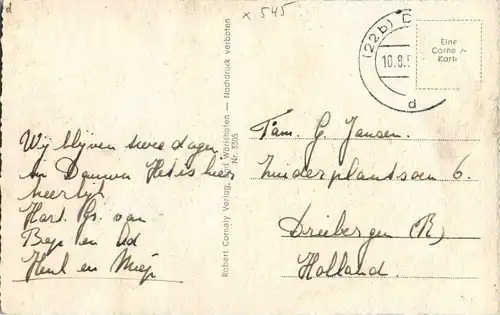 d
x 545
(22b) D
10.8.5
d
Eine
Cornely-
Karte
Wij blijven twee dagen
in Daun. Het is hier
heerlijk
Hart. Gr. van
Bep en Ad
Henk en Miep
Robert Cornely Verlag, Bad Wörishofen — Nachdruck verboten
Nr. 3395
Fam. G. Jansen.
Zuiderplantsoen 6.
Driebergen (R)
Holland.